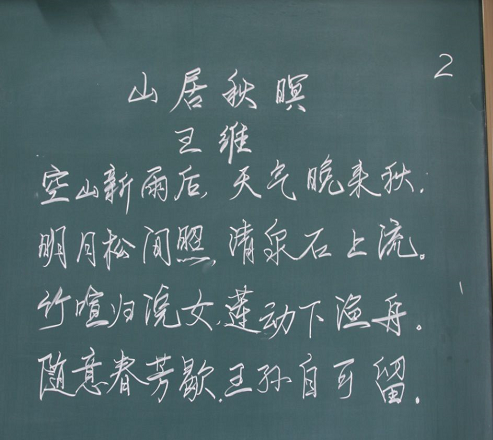 2
山居秋暝
王维
空山新雨后,天气晚来秋.
明月松间照,清泉石上流。
竹喧归浣女,莲动下渔舟。
随意春芳歇,王孙自可留.